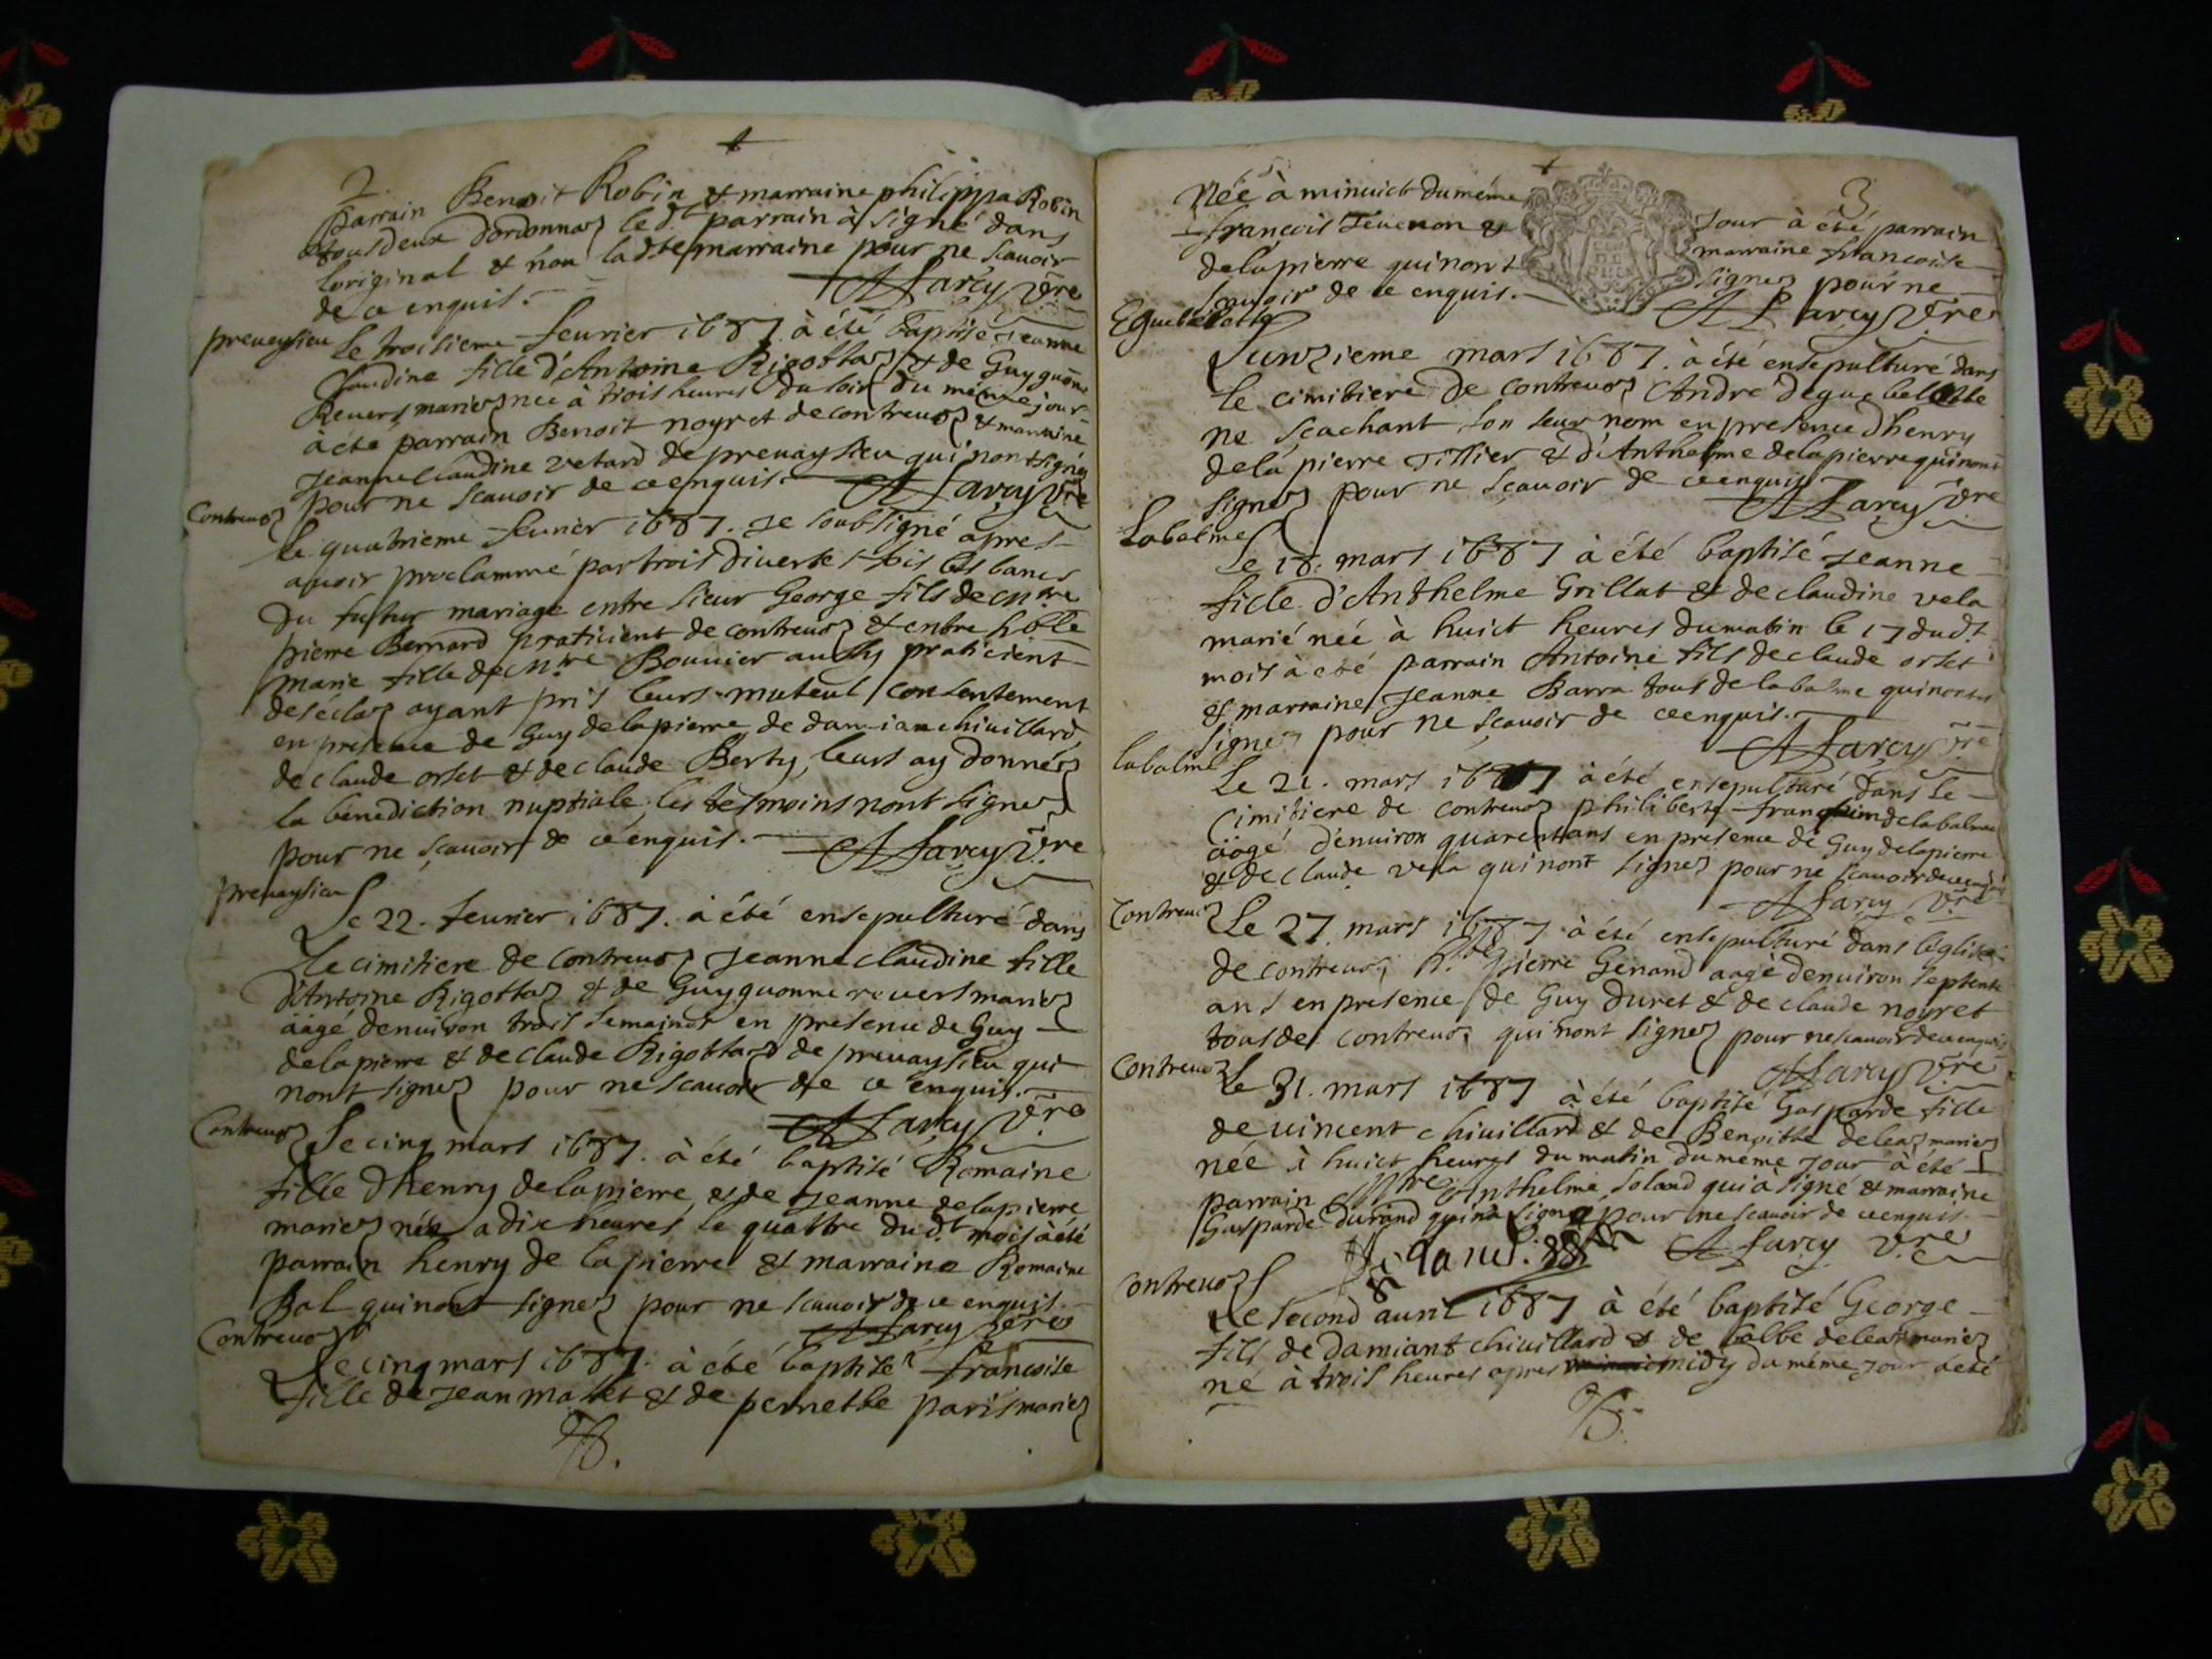 2.
Parrain Benoit Robin & marraine philippa Robin
tous deux dordonnaz le dt parrain à signé dans
loriginal & non ladte marraine pour ne scauoir
de ce enquis.
A Larcy vre
preueysieu
Le troisieme feurier 1687 à été baptisé Jeanne
Claudine fille d'Antoine Rigottaz & de Guyguonne
Reuers mariez née à trois heures du soir du méme jour
à été parrain Benoit noyret de contreuoz & marraine
Jeanne Claudine vetard de preuaysieu qui nont signez
pour ne scauoir de ce enquis. A Larcy vre
Contreuoz
Le quatrieme feurier 1687. Je soubsigné apres
auoir proclammé par trois diuerses fois les bancs
du futur mariage entre sieur George fils de Mtre
pierre Bernard praticient de contreuoz & entre hble
marie fille de Mtre Bouuier aussy praticient
desclaz ayant pris leurs muteul consentement
en presence de Guy delapierre de damian chiuillard
de claude orset & de claude Berty, leurs ay donnéz
la bénediction nuptiale les tesmoins nont signez
pour ne sçauoir de ce enquis.
A Larcy vre
preuaysieu
Le 22. feurier 1687. à été ensepulturé dans
le cimitiere de contreuoz Jeanne claudine fille
d'Antoine Rigottaz & de Guyguonne reuers mariez
aagé denuiron trois semaines en presence de Guy
delapierre & de claude Rigottaz de preuaysieu qui
nont signez pour ne scauoir de ce enquis.
A Larcy vre
Contreuoz
Le cinq mars 1687. à été baptisé Romaine
fille dhenry delapierre & de Jeanne delapierre
mariez née a dix heures le quattre dudt mois à été
parrain henry de lapierre & marraine Romaine
Bal qui nont signez pour ne scauoir de ce enquis.
A Larcy vre
Contreuoz
Le cinq mars 1687. à été baptisé francoise
fille de Jean mallet & de pernette paris mariez
3
Née à minuict du méme Jour à été parrain
françois Teuenon & marraine francoise
delapierre qui nont signez pour ne
scauoir de ce enquis.
A Larcy vre
Eguebelette
Lunzieme mars 1687. à été ensepulturé dans
le cimitiere de contreuoz Andre deguebelette
ne sçachant son seur nom en presence dhenry
delapierre Tissier & d'Anthelme delapierre qui nont
signez pour ne sçauoir de ce enquis
A Larcy vre
Labalme
Le 18. mars 1687 à été baptisé Jeanne
fille d'Anthelme Grillat & de claudine vela
marié née à huict heures du matin le 17 dudt
mois à eté parrain Antoine fils de claude orset
& marraine Jeanne Barra tous de labalme qui nont
signez pour ne sçauoir de ce enquis.
A Larcy vre
labalme
Le 21. mars 1687 à été ensepulturé dans le
Cimitiere de contreuoz philiberte delabalme
aagé d'enuiron quarent ans en presence de Guy delapierre
& de claude vela qui nont signez pour ne scauoir de ce enquis
A Larcy vre
Contreuoz
Le 27. mars 1687 à été ensepulturé dans léglise
de contreuoz, hble pierre Genand aagé denuiron septente
ans en presence de Guy duret & de claude noyret
tous de contreuoz qui nont signez pour ne scauoir de ce enquis
A Larcy vre
Contreuoz
Le 31. mars 1687 à été baptisé Gasparde fille
de uincent chiuillard & de Benoitte deleaz mariez
née à huict heures du matin du méme Jour à été
parrain Mtre Anthelme Soland qui a signé & marraine
Gasparde durand qui na signé pour ne scauoir de ce enquis
A Larcy vre
Contreuoz
Le second auril 1687 à été baptisé George
fils de Damiant chiuillard & de balbe deleaz mariez
né à trois heures apres midy du méme Jour à eté